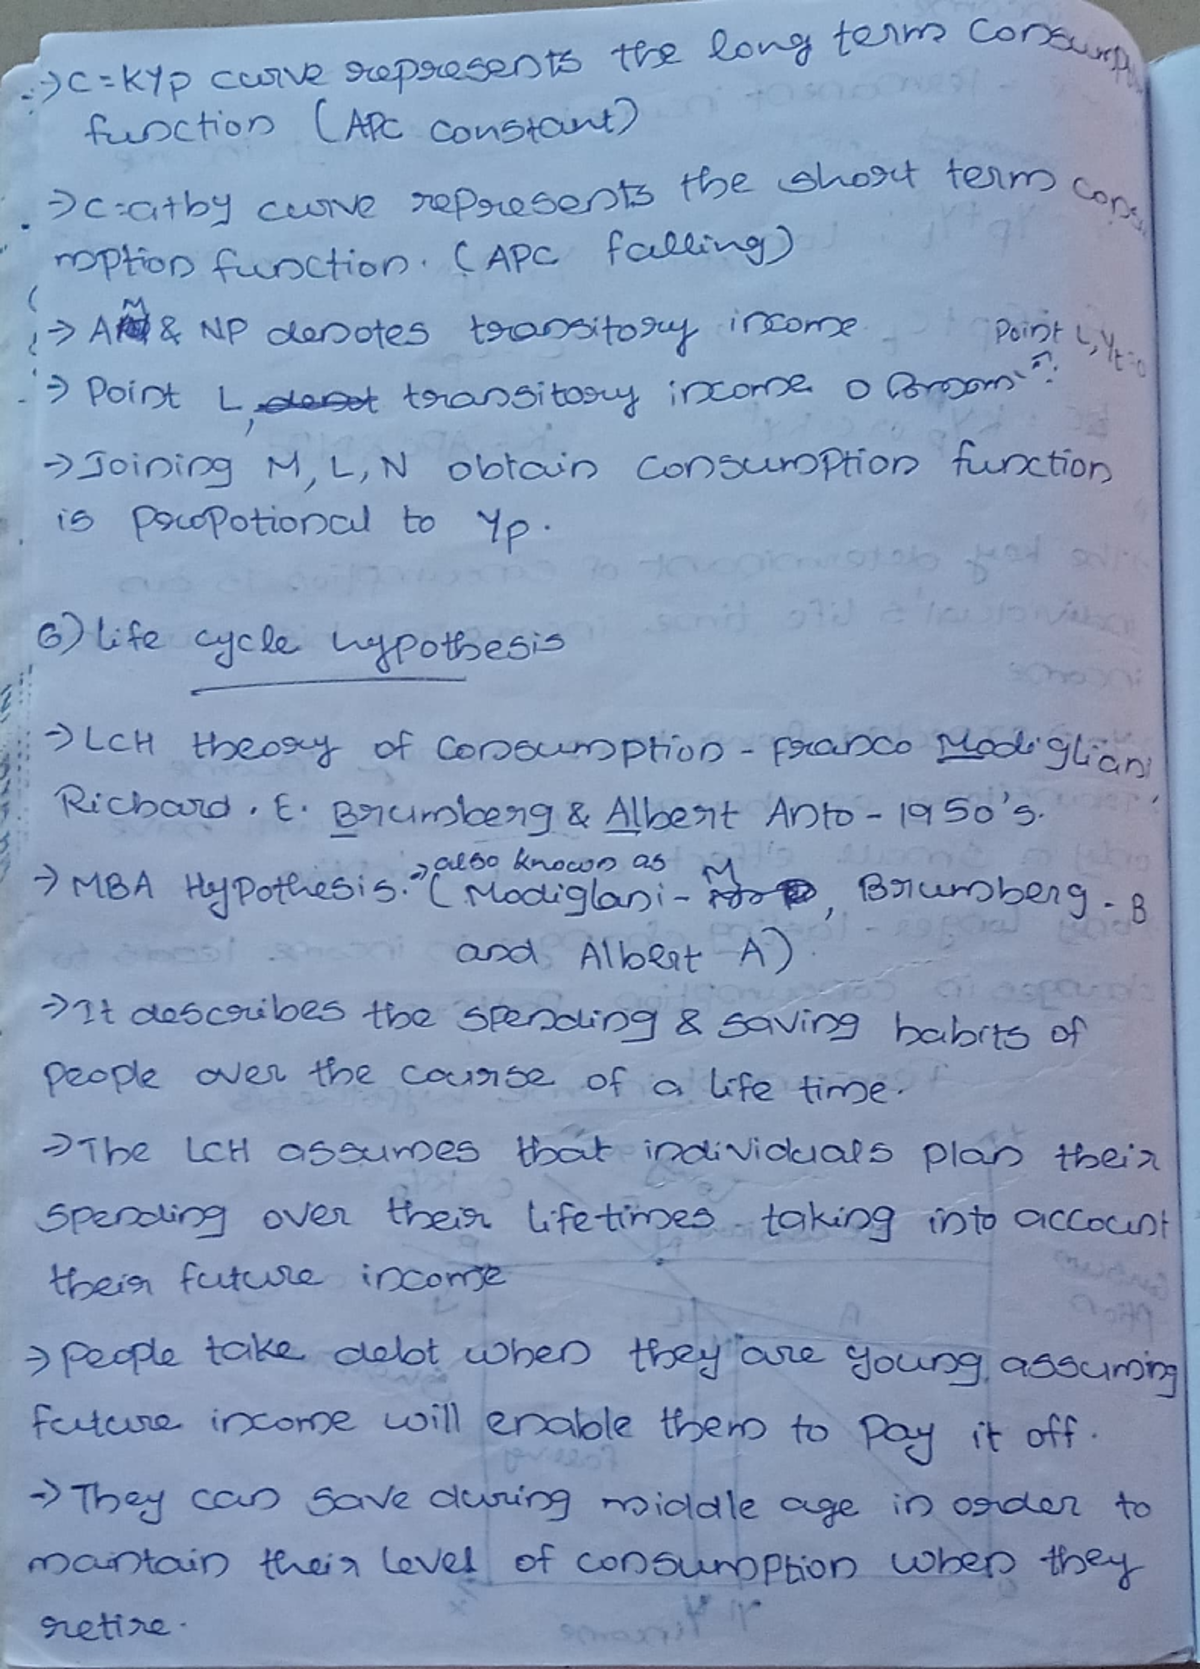 → C = Kyp curve represents the long term Consump
function (APC constant)
→ C = a+by curve represents the short term consu
mption function. (APC falling)
→ AM & NP denotes transitory income
Point L, Yt=0
→ Point L, transitory income 0
→ Joining M, L, N obtain consumption function
is propotional to Yp.
6) Life cycle hypothesis
→ LCH theory of Consumption - Franco Modigliani
Richard. E. Brumberg & Albert Anto - 1950's.
→ also known as
→ MBA Hypothesis. (Modiglani - M, Brumberg - B
and Albert A)
→ It describes the spending & saving habits of
people over the course of a life time.
→ The LCH assumes that individuals plan their
spending over their lifetimes taking into account
their future income
→ People take debt when they are young, assuming
future income will enable them to pay it off.
→ They can save during middle age in order to
maintain their level of consumption when they
retire.